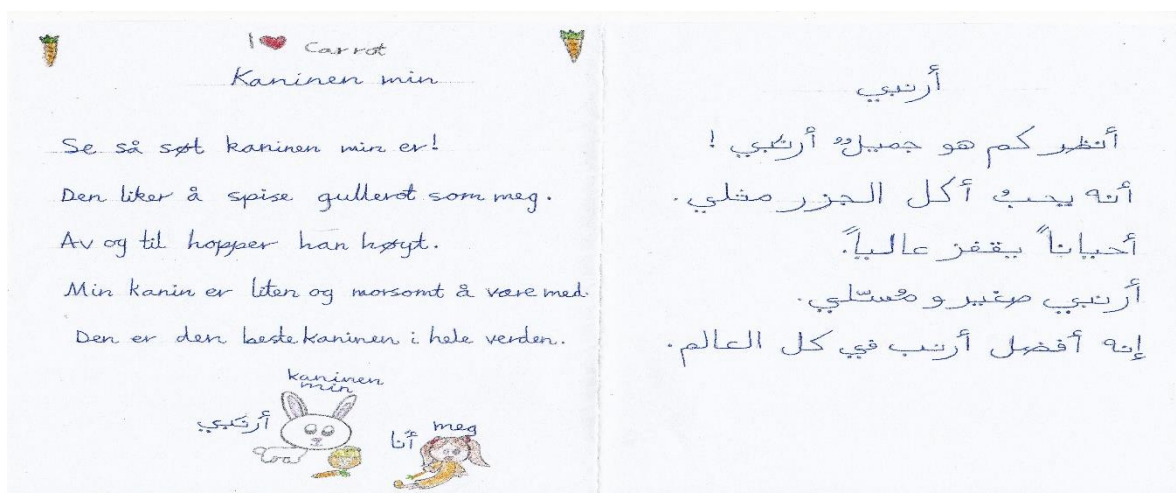 I ❤ Carrot
Kaninen min
Se så søt kaninen min er!
Den liker å spise gullerot som meg.
Av og til hopper han høyt.
Min kanin er liten og morsomt å være med.
Den er den beste kaninen i hele verden.
kaninen
min
أرنبي
meg
أنا
أرنبي
أنظر كم هو جميلٌ أرنبي !
أنه يحبُ أكل الجزر مثلي.
أحياناً يقفز عالياً.
أرنبي صغير و مُسَلي.
إنه أفضل أرنب في كل العالم.